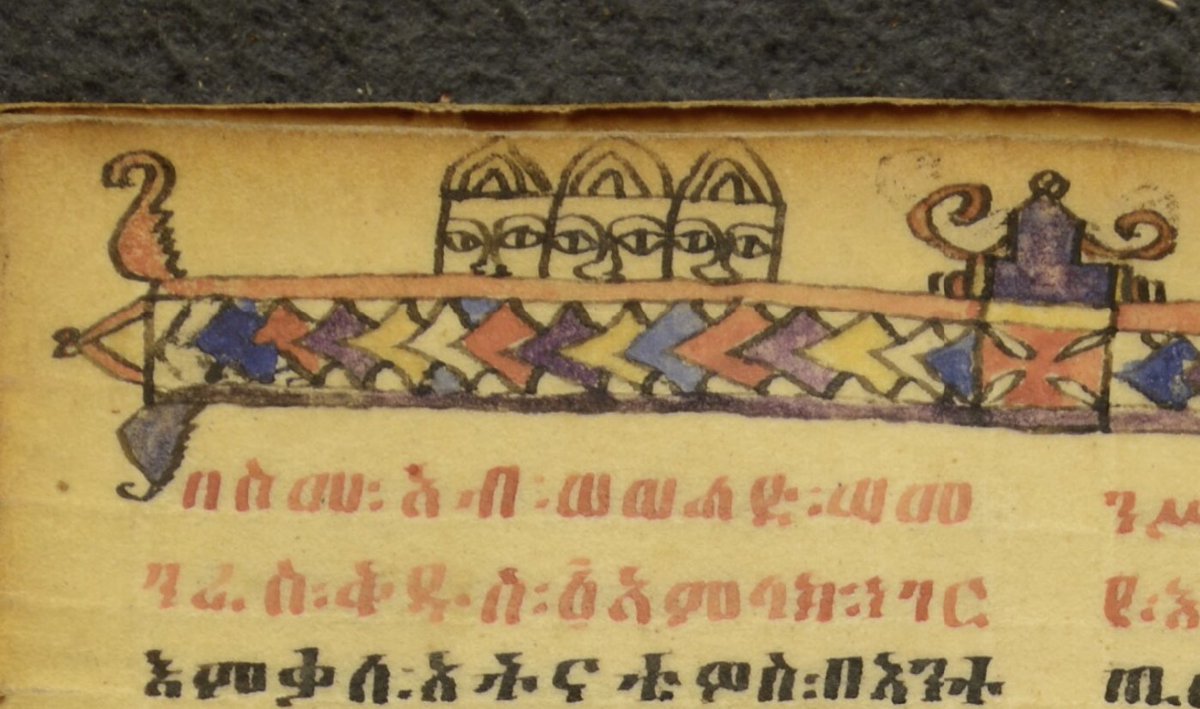 በስመ፡አብ፡ወወልድ፡ወመ
ንፈስ፡ቅዱስ፡፩አምላክ፡ነገር
እምቃለ፡አትናቴዎስ፡በእንተ